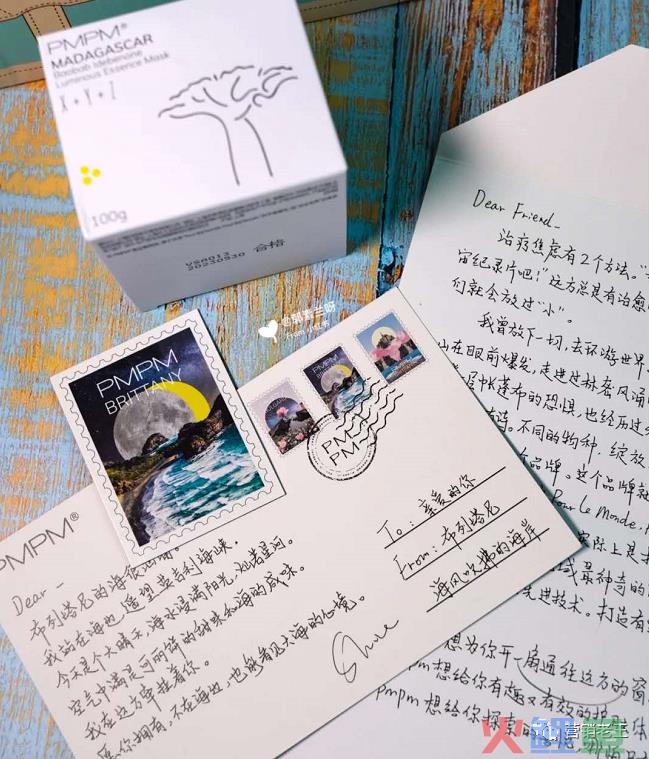 PMPM®
MADAGASCAR
Baobab Idebenone
Luminous Essence Mask
X+Y+Z
100g
VS6013
20230530 合格
PMPM
BRITTANY
PMPM
PM-P
To: 亲爱的你
From: 布列塔尼
海风吹拂的海岸
PMPM®
Dear—
布列塔尼的海很
我站在海边,遥望英吉利海峡.
今天是个大晴天,海水浸满阳光,灿若星河。
空气中满是可丽饼的甜味和海的咸味。
我在远方牵挂着你。
愿你拥有,不在海边,也能看见大海的心境。
Dear Friend—
治疗焦虑有2个方法。
宙纪录片吧!"远方总是有治愈
们就会放过"小"。
我曾放下一切,去环游世界
在眼前爆发,走进过林奔风涌
帐篷布的恐惧,也经历过
不同的物种,绽放
个品牌。这个品牌就
Pour Le Monde,
实际上是
域最神奇的
进技术。打造有
想为你开一扇通往远方的窗
pm想给你有趣又有效的护
pmpm想给你探索的
营销老王